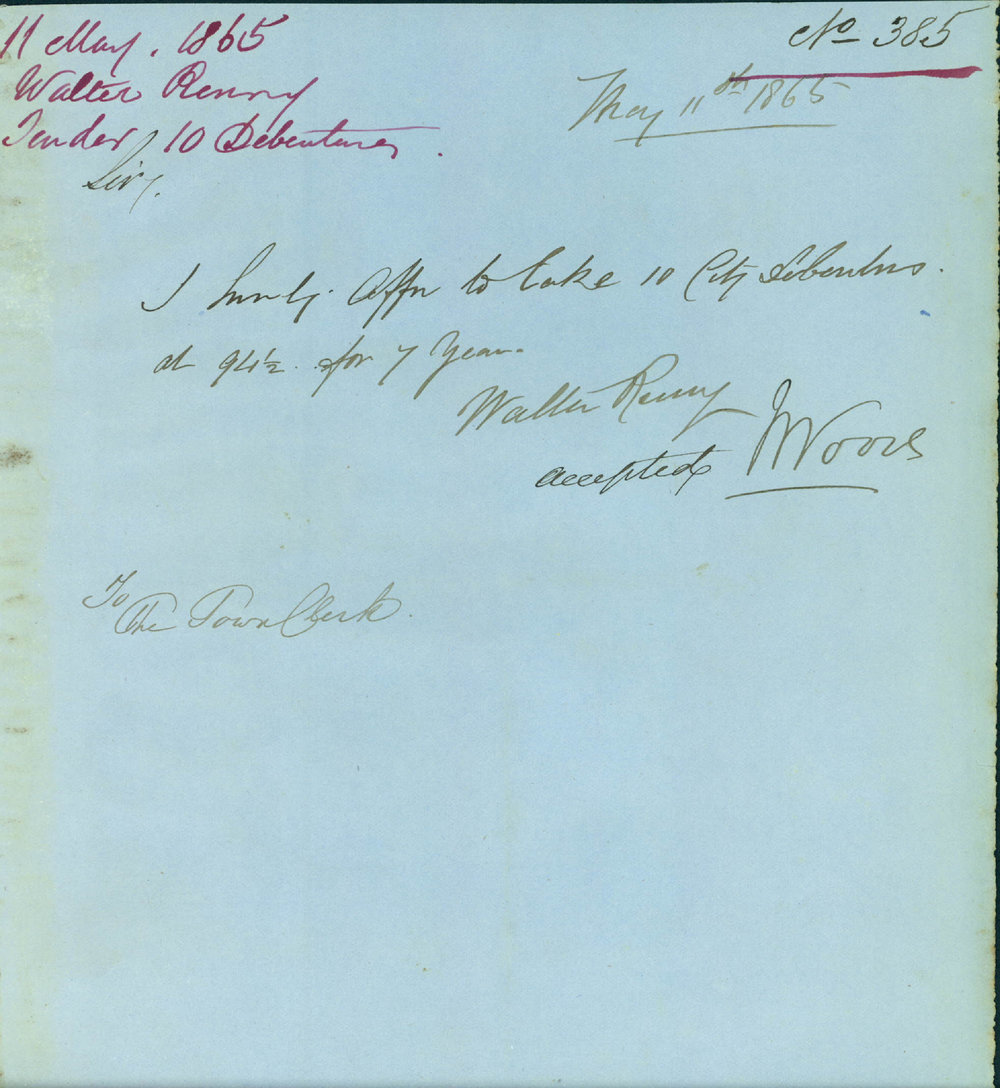 11 May. 1865
Walter Renny
Tender 10 Debentures.
No 385
May 11th 1865
Sir,
I hereby Offer to take 10 City Debentures.
at 94½ for 7 Years.
Walter Renny
accepted
To
The Town Clerk.